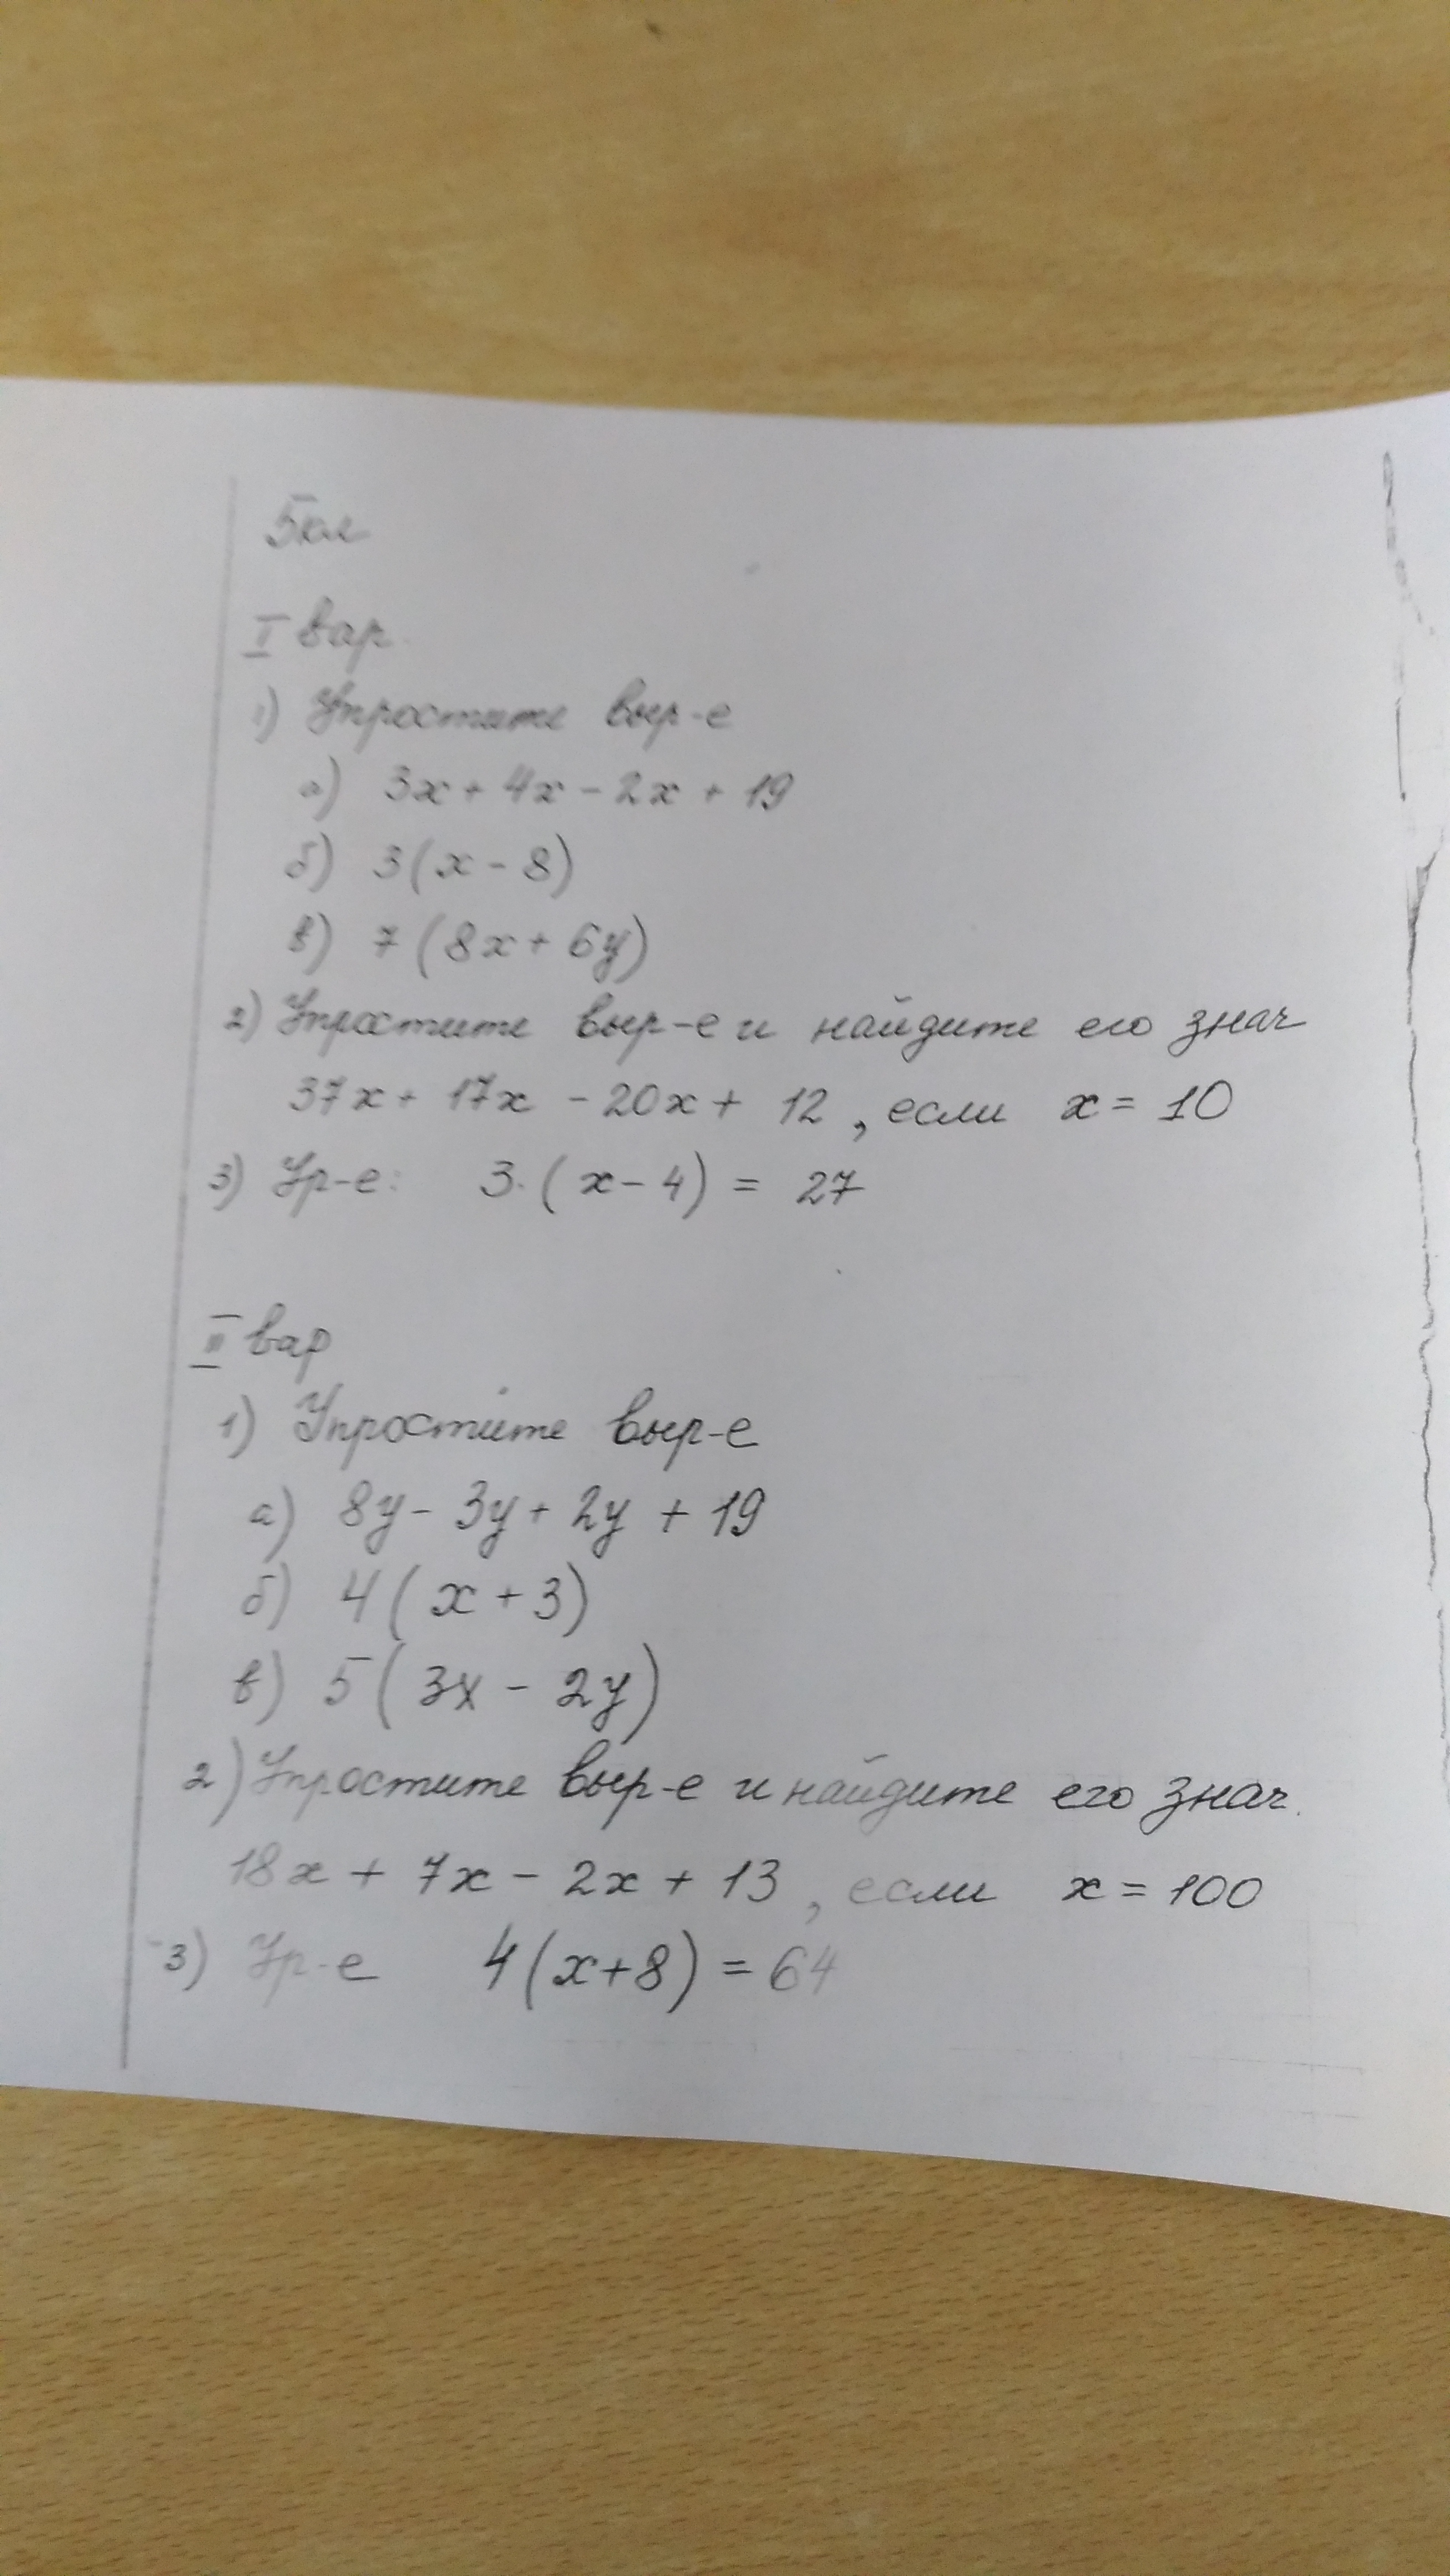 5кл
I вар.
1) Упростите выр-е
а) 3x + 4x - 2x + 19
б) 3(x - 8)
в) 7(8x + 6y)
2) Упростите выр-е и найдите его знач
37x + 17x - 20x + 12, если x = 10
3) Ур-е: 3·(x - 4) = 27
II вар
1) Упростите выр-е
а) 8y - 3y + 2y + 19
б) 4(x + 3)
в) 5(3x - 2y)
2) Упростите выр-е и найдите его знач.
18x + 7x - 2x + 13, если x = 100
3) Ур-е 4(x+8) = 64